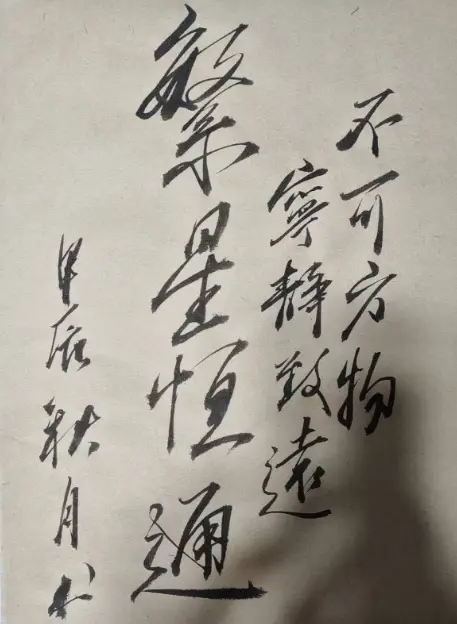 不可方物
寧静致遠
繁星恒通
甲辰秋月书